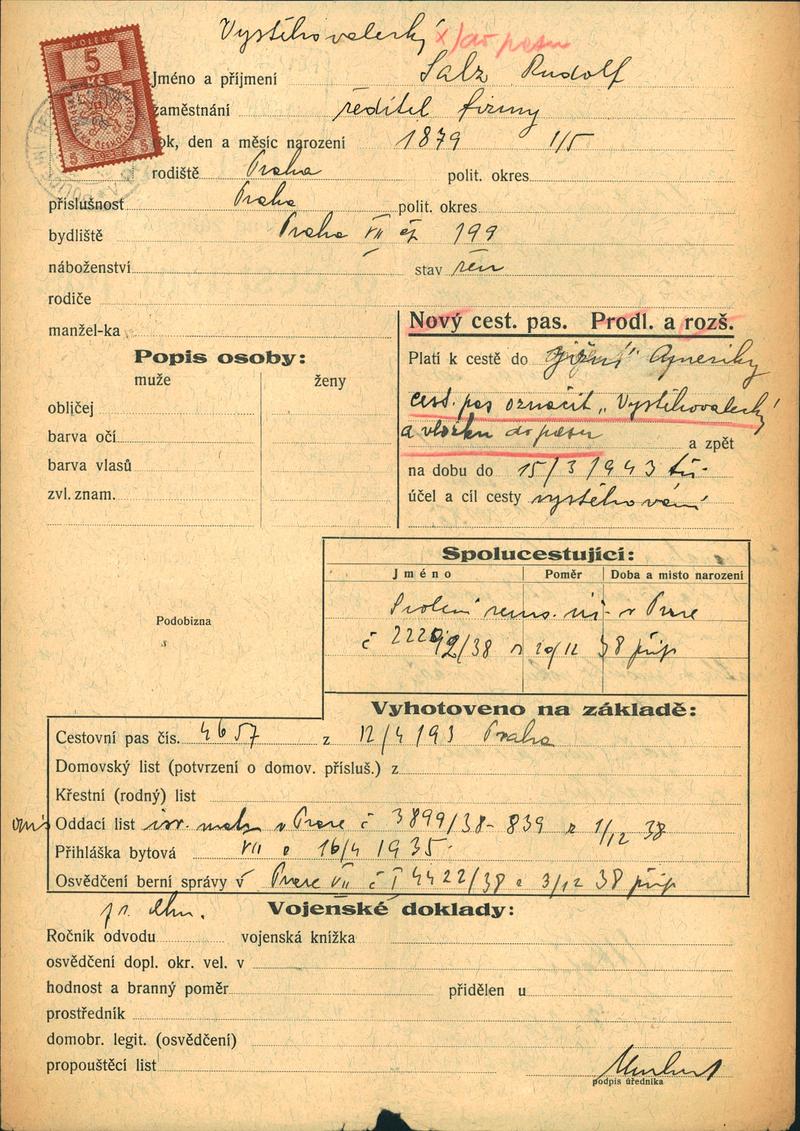 Vystěhovalecký x) do pasu
KOLEK
5
Kč
Jméno a příjmení Salz Rudolf
zaměstnání ředitel firmy
ok, den a měsíc narození 1879 1/5
rodiště Praha polit. okres
příslušnost Praha polit. okres
bydliště Praha VII čp 199
náboženství stav žen
rodiče
manžel-ka
Nový cest. pas. Prodl. a rozš.
Popis osoby:
muže ženy
obličej
barva očí
barva vlasů
zvl. znam.
Platí k cestě do Jižní Ameriky
cest. pas označit „Vystěhovalecký"
a vložku do pasu a zpět
na dobu do 15/3/1943
účel a cíl cesty vystěhování
Spolucestující:
Jméno Poměr Doba a misto narození
Svolení v Praze
č 38 20/12 38 přip
Podobizna
Vyhotoveno na základě:
Cestovní pas čís. 4657 z 12/4 193 Praha
Domovský list (potvrzení o domov. přísluš.) z
Křestní (rodný) list
Oddací list isr. v Praze č 3899/38-839 z 1/12 38
Přihláška bytová VII 16/4 1935
Osvědčení berní správy v Praze VII č I 4422/38 3/12 38 přip
Vojenské doklady:
Ročník odvodu vojenská knížka
osvědčení dopl. okr. vel. v
hodnost a branný poměr přidělen u
prostředník
domobr. legit. (osvědčení)
propouštěcí list
podpis úředníka